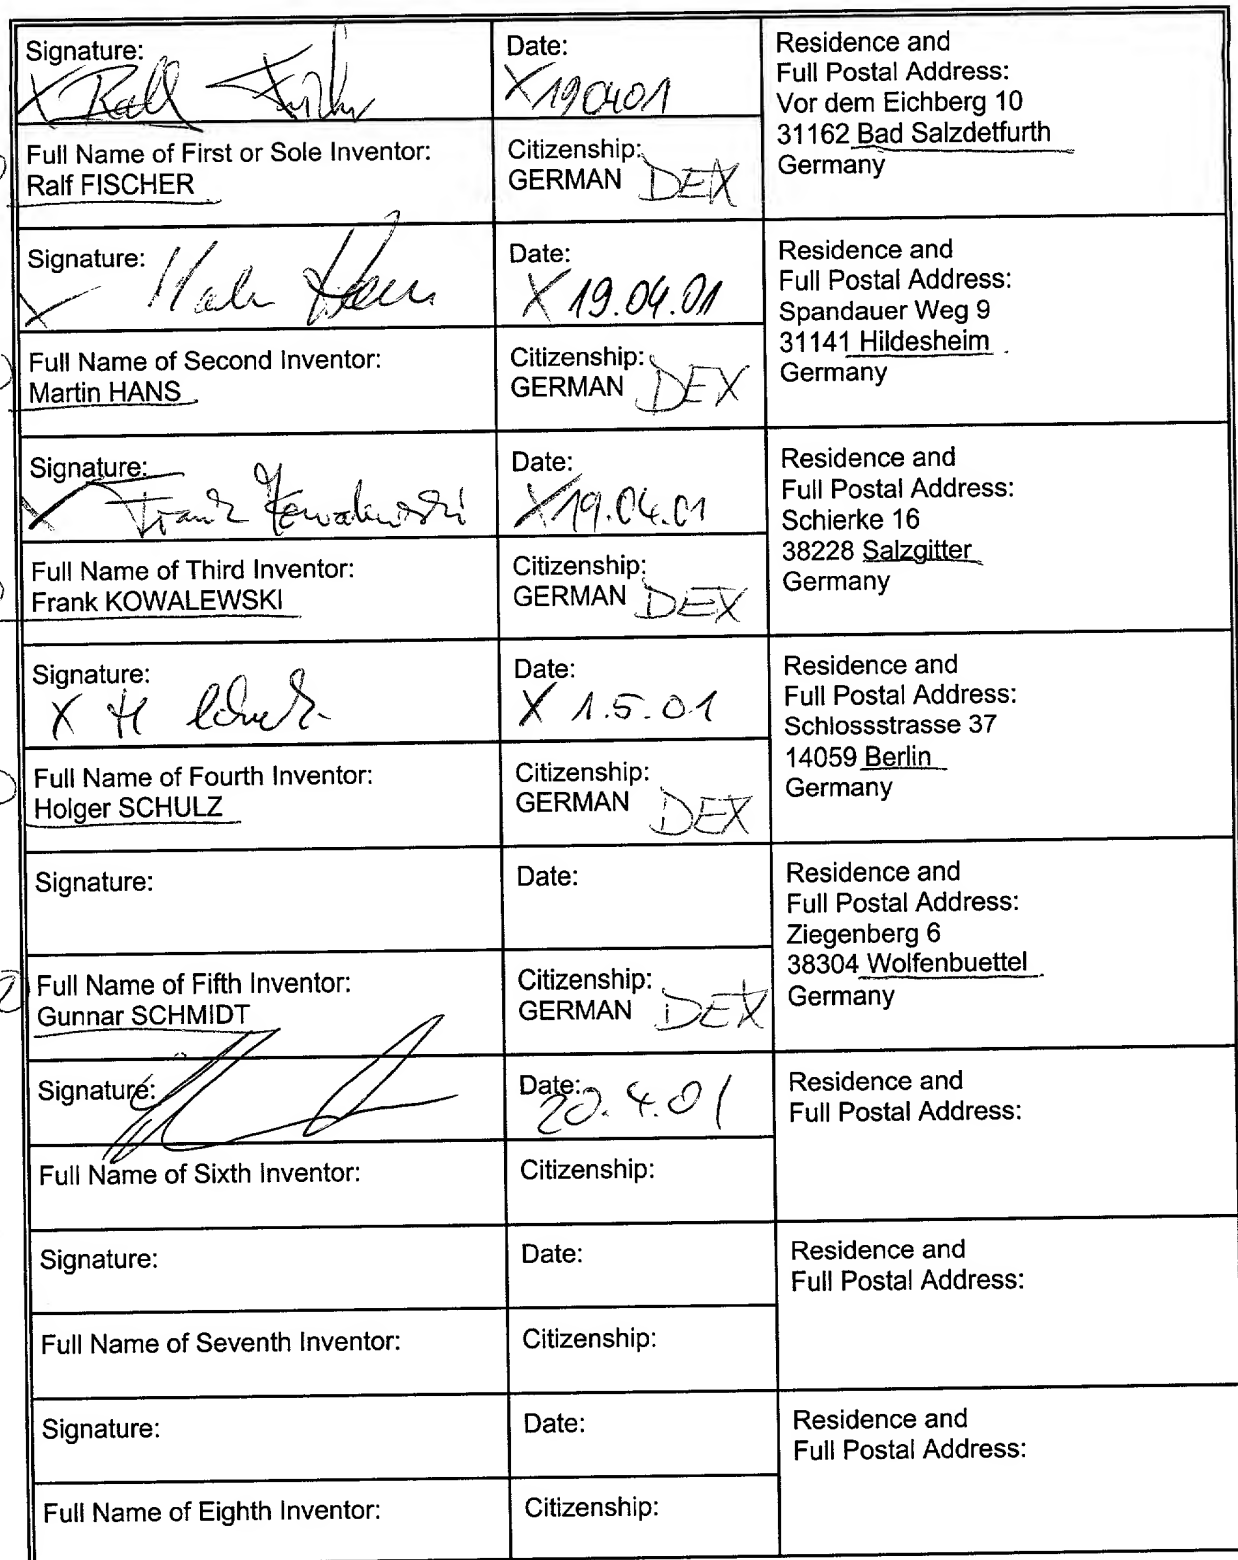 Signature:
X Ralf Fischer
Date:
X 190401
Residence and
Full Postal Address:
Vor dem Eichberg 10
31162 Bad Salzdetfurth
Germany
Full Name of First or Sole Inventor:
Ralf FISCHER
Citizenship:
GERMAN DEX
Signature:
X Hans
Date:
X 19.04.01
Residence and
Full Postal Address:
Spandauer Weg 9
31141 Hildesheim
Germany
Full Name of Second Inventor:
Martin HANS
Citizenship:
GERMAN DEX
Signature:
X Frank Kowalewski
Date:
X 19.04.01
Residence and
Full Postal Address:
Schierke 16
38228 Salzgitter
Germany
Full Name of Third Inventor:
Frank KOWALEWSKI
Citizenship:
GERMAN DEX
Signature:
X H
Date:
X 1.5.01
Residence and
Full Postal Address:
Schlossstrasse 37
14059 Berlin
Germany
Full Name of Fourth Inventor:
Holger SCHULZ
Citizenship:
GERMAN DEX
Signature:
Date:
Residence and
Full Postal Address:
Ziegenberg 6
38304 Wolfenbuettel
Germany
Full Name of Fifth Inventor:
Gunnar SCHMIDT
Citizenship:
GERMAN DEX
Signature:
Date:
20.4.01
Residence and
Full Postal Address:
Full Name of Sixth Inventor:
Citizenship:
Signature:
Date:
Residence and
Full Postal Address:
Full Name of Seventh Inventor:
Citizenship:
Signature:
Date:
Residence and
Full Postal Address:
Full Name of Eighth Inventor:
Citizenship: